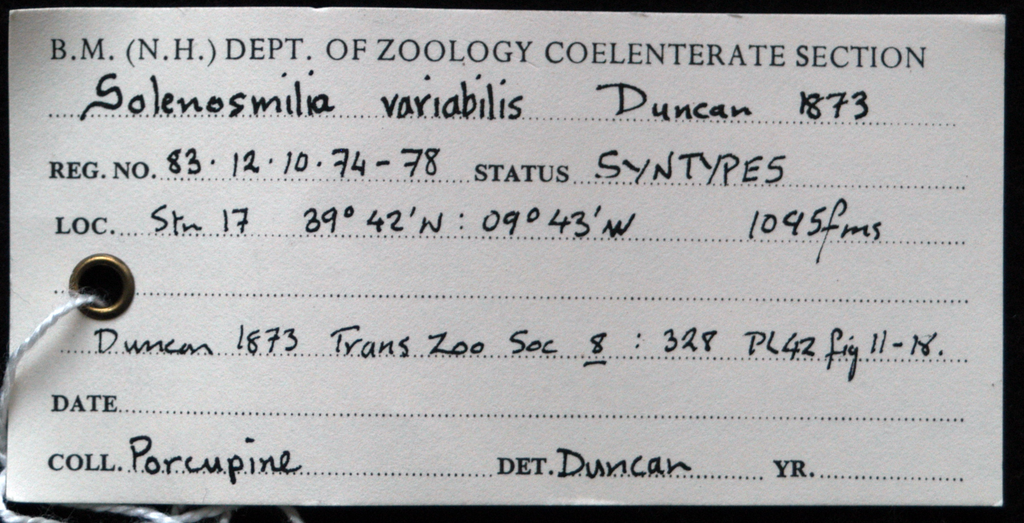 B.M. (N.H.) DEPT. OF ZOOLOGY COELENTERATE SECTION
Solenosmilia variabilis Duncan 1873
REG. NO. 83·12·10·74-78 STATUS SYNTYPES
LOC. Stn 17 39° 42'N : 09° 43'W 1095fms
Duncan 1873 Trans Zoo Soc 8 : 328 Pl 42 fig 11-18.
DATE
COLL. Porcupine DET. Duncan YR.